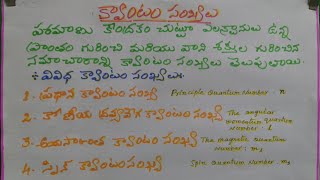 క్వాంటం సంఖ్యలు
పరమాణు కేంద్రకం చుట్టూ ఎలక్ట్రానులు ఉన్న
ప్రాంతం గురించి మరియు వాని శక్తుల గురించిన
సమాచారాన్ని క్వాంటం సంఖ్యలు తెలుపుతాయి.
వివిధ క్వాంటం సంఖ్యలు:
1. ప్రధాన క్వాంటం సంఖ్య Principle Quantum Number : n
2. కోణీయ ద్రవ్యవేగ క్వాంటంసంఖ్య The angular momentum quantum Number : l
3. అయస్కాంత క్వాంటంసంఖ్య The magnetic Quantum Number : m
4. స్పిన్ క్వాంటంసంఖ్య Spin Quantum Number : m